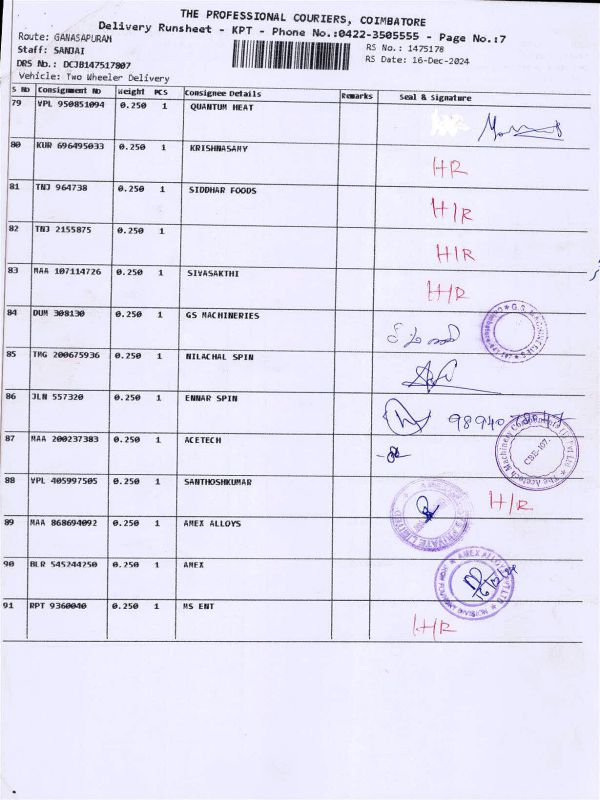 THE PROFESSIONAL COURIERS, COIMBATORE
Delivery Runsheet - KPT - Phone No.:0422-3505555 - Page No.:7
Route: GANASAPURAM
RS No.: 1475178
Staff: SANJAI
RS Date: 16-Dec-2024
DRS No.: DCJB147517807
Vehicle: Two Wheeler Delivery
S No Consignment No Weight PCS Consignee Details Remarks Seal & Signature
79 VPL 950851094 0.250 1 QUANTUM HEAT
80 KUR 696495033 0.250 1 KRISHNASAMY
HR
81 TNJ 964738 0.250 1 SIDDHAR FOODS
H/R
82 TNJ 2155875 0.250 1
H/R
83 MAA 107114726 0.250 1 SIVASAKTHI
H/R
84 DUM 308130 0.250 1 GS MACHINERIES
85 TMG 200675936 0.250 1 NILACHAL SPIN
86 JLN 557320 0.250 1 ENNAR SPIN
98940
87 MAA 200237383 0.250 1 ACETECH
The Acetech Machinery Components Pvt Ltd
CBE-107.
88 VPL 405997505 0.250 1 SANTHOSHKUMAR
H/R
PRIVATE LIMITED
89 MAA 868694092 0.250 1 AMEX ALLOYS
90 BLR 545244250 0.250 1 AMEX
AMEX ALLOYS PVT LTD
91 RPT 9360040 0.250 1 MS ENT
H/R